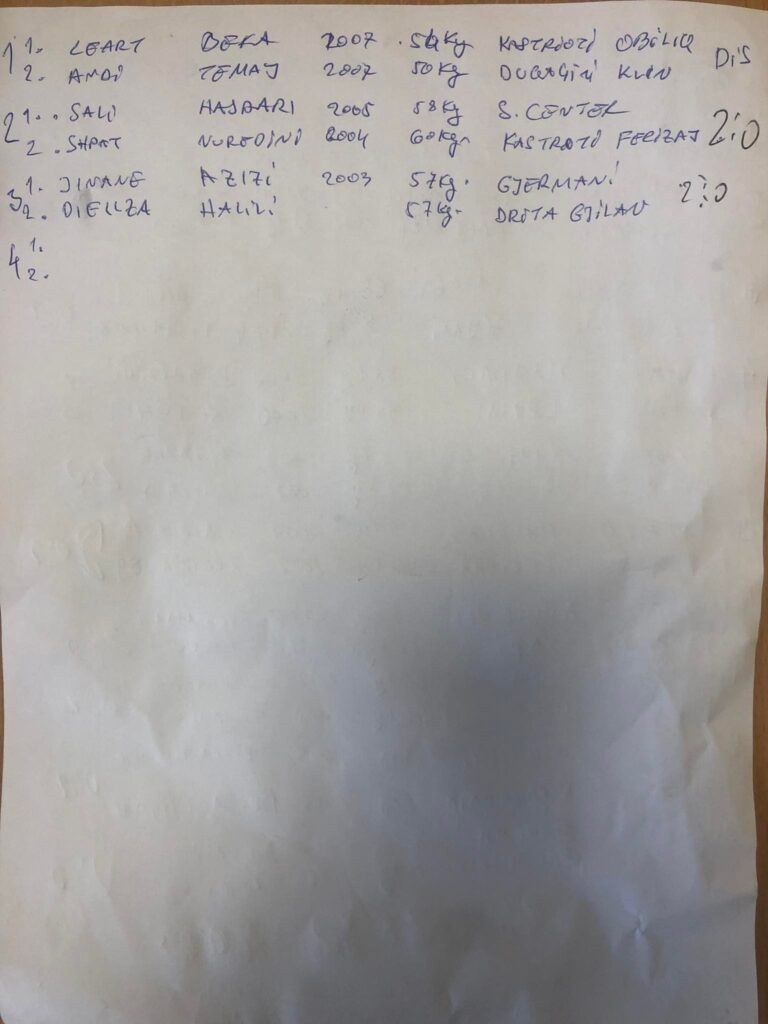 1 1. LEART BEKA 2007 .54kg KASTRIOTI OBILIQ DIS
2. ANDI TEMAJ 2007 50kg DUGAGJINI KLIN
2 1.. SALI HAJDARI 2005 58kg S.CENTER 2:0
2. SHPAT NUREDINI 2004 60kg KASTRIOTI FERIZAJ
3 1. JINANE AZIZI 2003 57kg. GJERMANI 2:0
2. DIELLZA HALILI 57kg. DRITA GJILAN
4 1.
2.